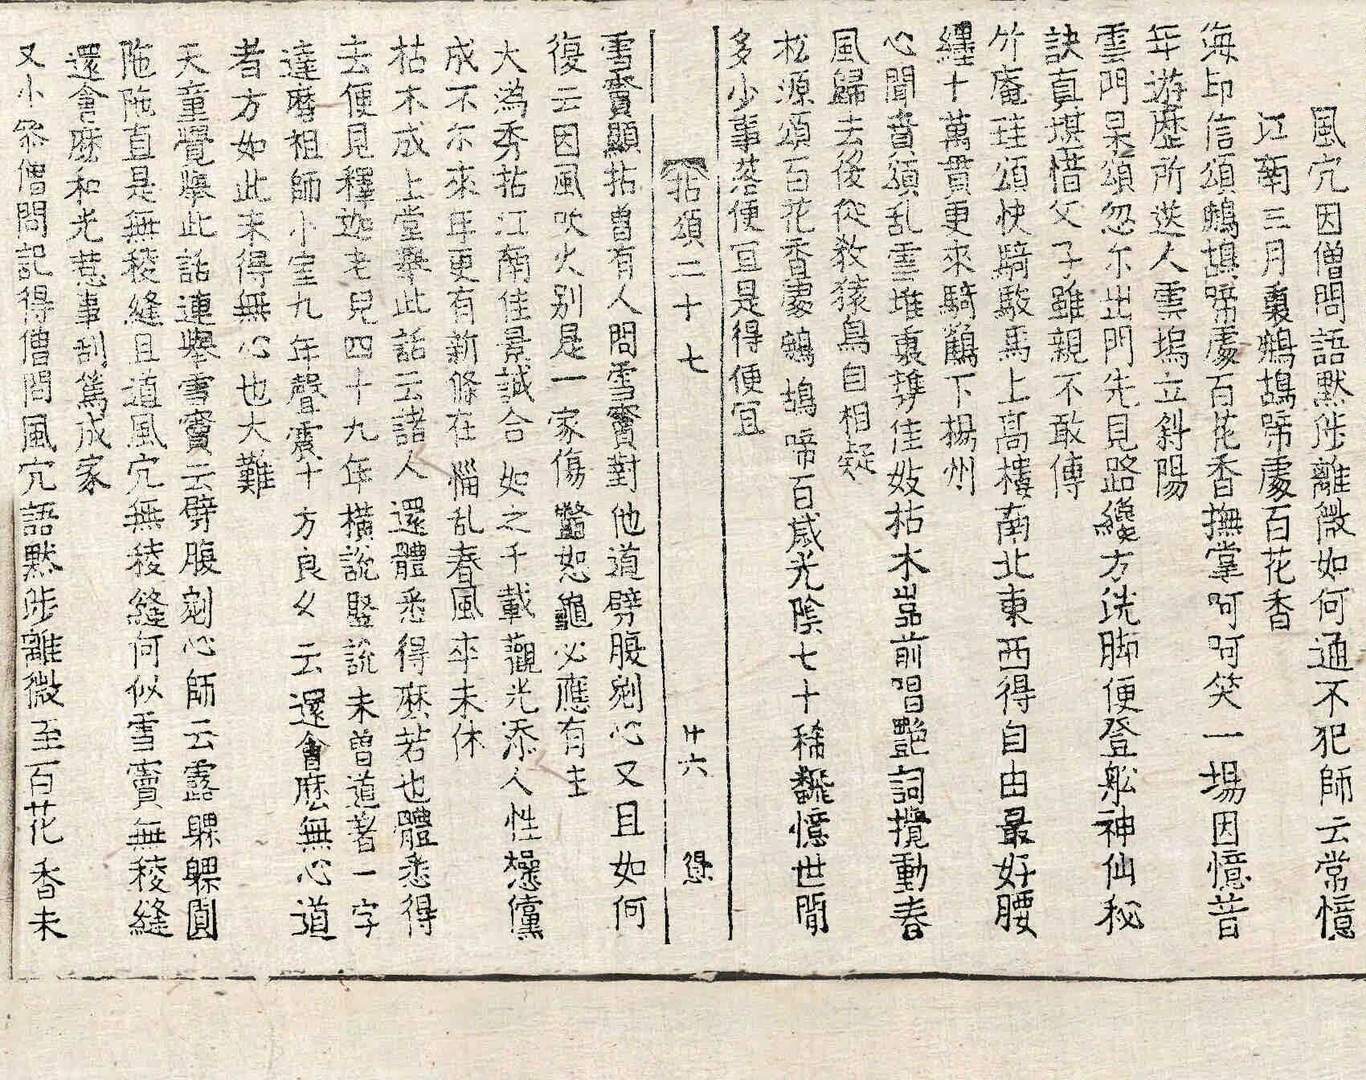 風穴因僧問語默涉離微如何通不犯師云常憶
江南三月裏鷓鴣啼處百花香
海印信頌鷓鴣啼處百花香撫掌呵呵笑一場因憶昔
年游歷所遊人雲塢立斜陽
雲門杲頌忽尒出門先見路纔方洗脚便登舩神仙秘
訣真堪惜父子雖親不敢傳
竹庵珪頌快騎駿馬上高樓南北東西得自由最好腰
纏十萬貫更來騎鶴下揚州
心聞賁頌乱雲堆裏轉佳妓枯木嵓前唱艷詞攪動春
風歸去後從教猿鳥自相疑
松源頌百花香處鷓鴣啼百歲光陰七十稀飜憶世間
多少事落便冝是得便冝
拈頌二十七 廿六
雪竇顯拈曾有人問雪竇對他道劈腹剜心又且如何
復云因風吹火别是一家傷鼈恕龜必應有主
大潙秀拈江南佳景誠合如之千載觀光添人性燥儻
成不尒來年更有新條在惱乱春風卒未休
枯木成上堂舉此話云諸人還體悉得麽若也體悉得
去便見釋迦老兒四十九年橫說竪說未曾道著一字
達磨祖師小室九年聲震十方良久云還會麽無心道
者方如此未得無心也大難
天童覺舉此話連舉雪竇云劈腹剜心師云露躶躶圓
陁陁直是無稜縫且道風穴無稜縫何似雪竇無稜縫
還會麽和光惹事刮篤成家
又小叅僧問記得僧問風穴語默涉離微至百花香未